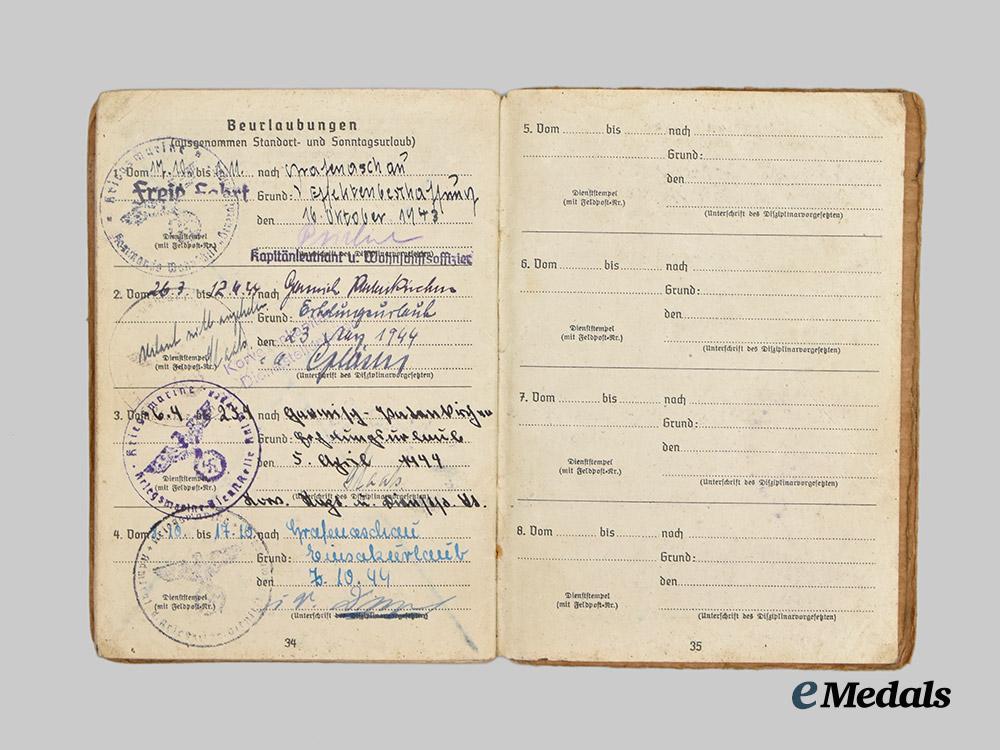 Beurlaubungen
(ausgenommen Standort- und Sonntagsurlaub)
Vom bis nach Grafenaschau
Grund:
den 16. Oktober 1943
Dienststempel
(mit Feldpost-Nr.)
Kapitänleutnant u.
2. Vom 26.3. bis 12.4.44 nach
Grund: Erholungsurlaub
den 23 März 1944
Dienststempel
(mit Feldpost-Nr.)
(Unterschrift des Disziplinarvorgesetzten)
3. Vom 6.4 bis 27.4 nach Garmisch-Partenkirchen
Grund: Erholungsurlaub
den 5. April 1944
Maas
Dienststempel
(mit Feldpost-Nr.)
(Unterschrift des Disziplinarvorgesetzten)
4. Vom bis 17.10. nach Grafenaschau
Grund: Einsatzurlaub
den 7.10.44
Dienststempel
(mit Feldpost-Nr.)
(Unterschrift des Disziplinarvorgesetzten)
34
Kriegsmarine
5. Vom bis nach
Grund:
den
Dienststempel
(mit Feldpost-Nr.)
(Unterschrift des Disziplinarvorgesetzten)
6. Vom bis nach
Grund:
den
Dienststempel
(mit Feldpost-Nr.)
(Unterschrift des Disziplinarvorgesetzten)
7. Vom bis nach
Grund:
den
Dienststempel
(mit Feldpost-Nr.)
(Unterschrift des Disziplinarvorgesetzten)
8. Vom bis nach
Grund:
den
Dienststempel
(mit Feldpost-Nr.)
(Unterschrift des Disziplinarvorgesetzten)
35
eMedals